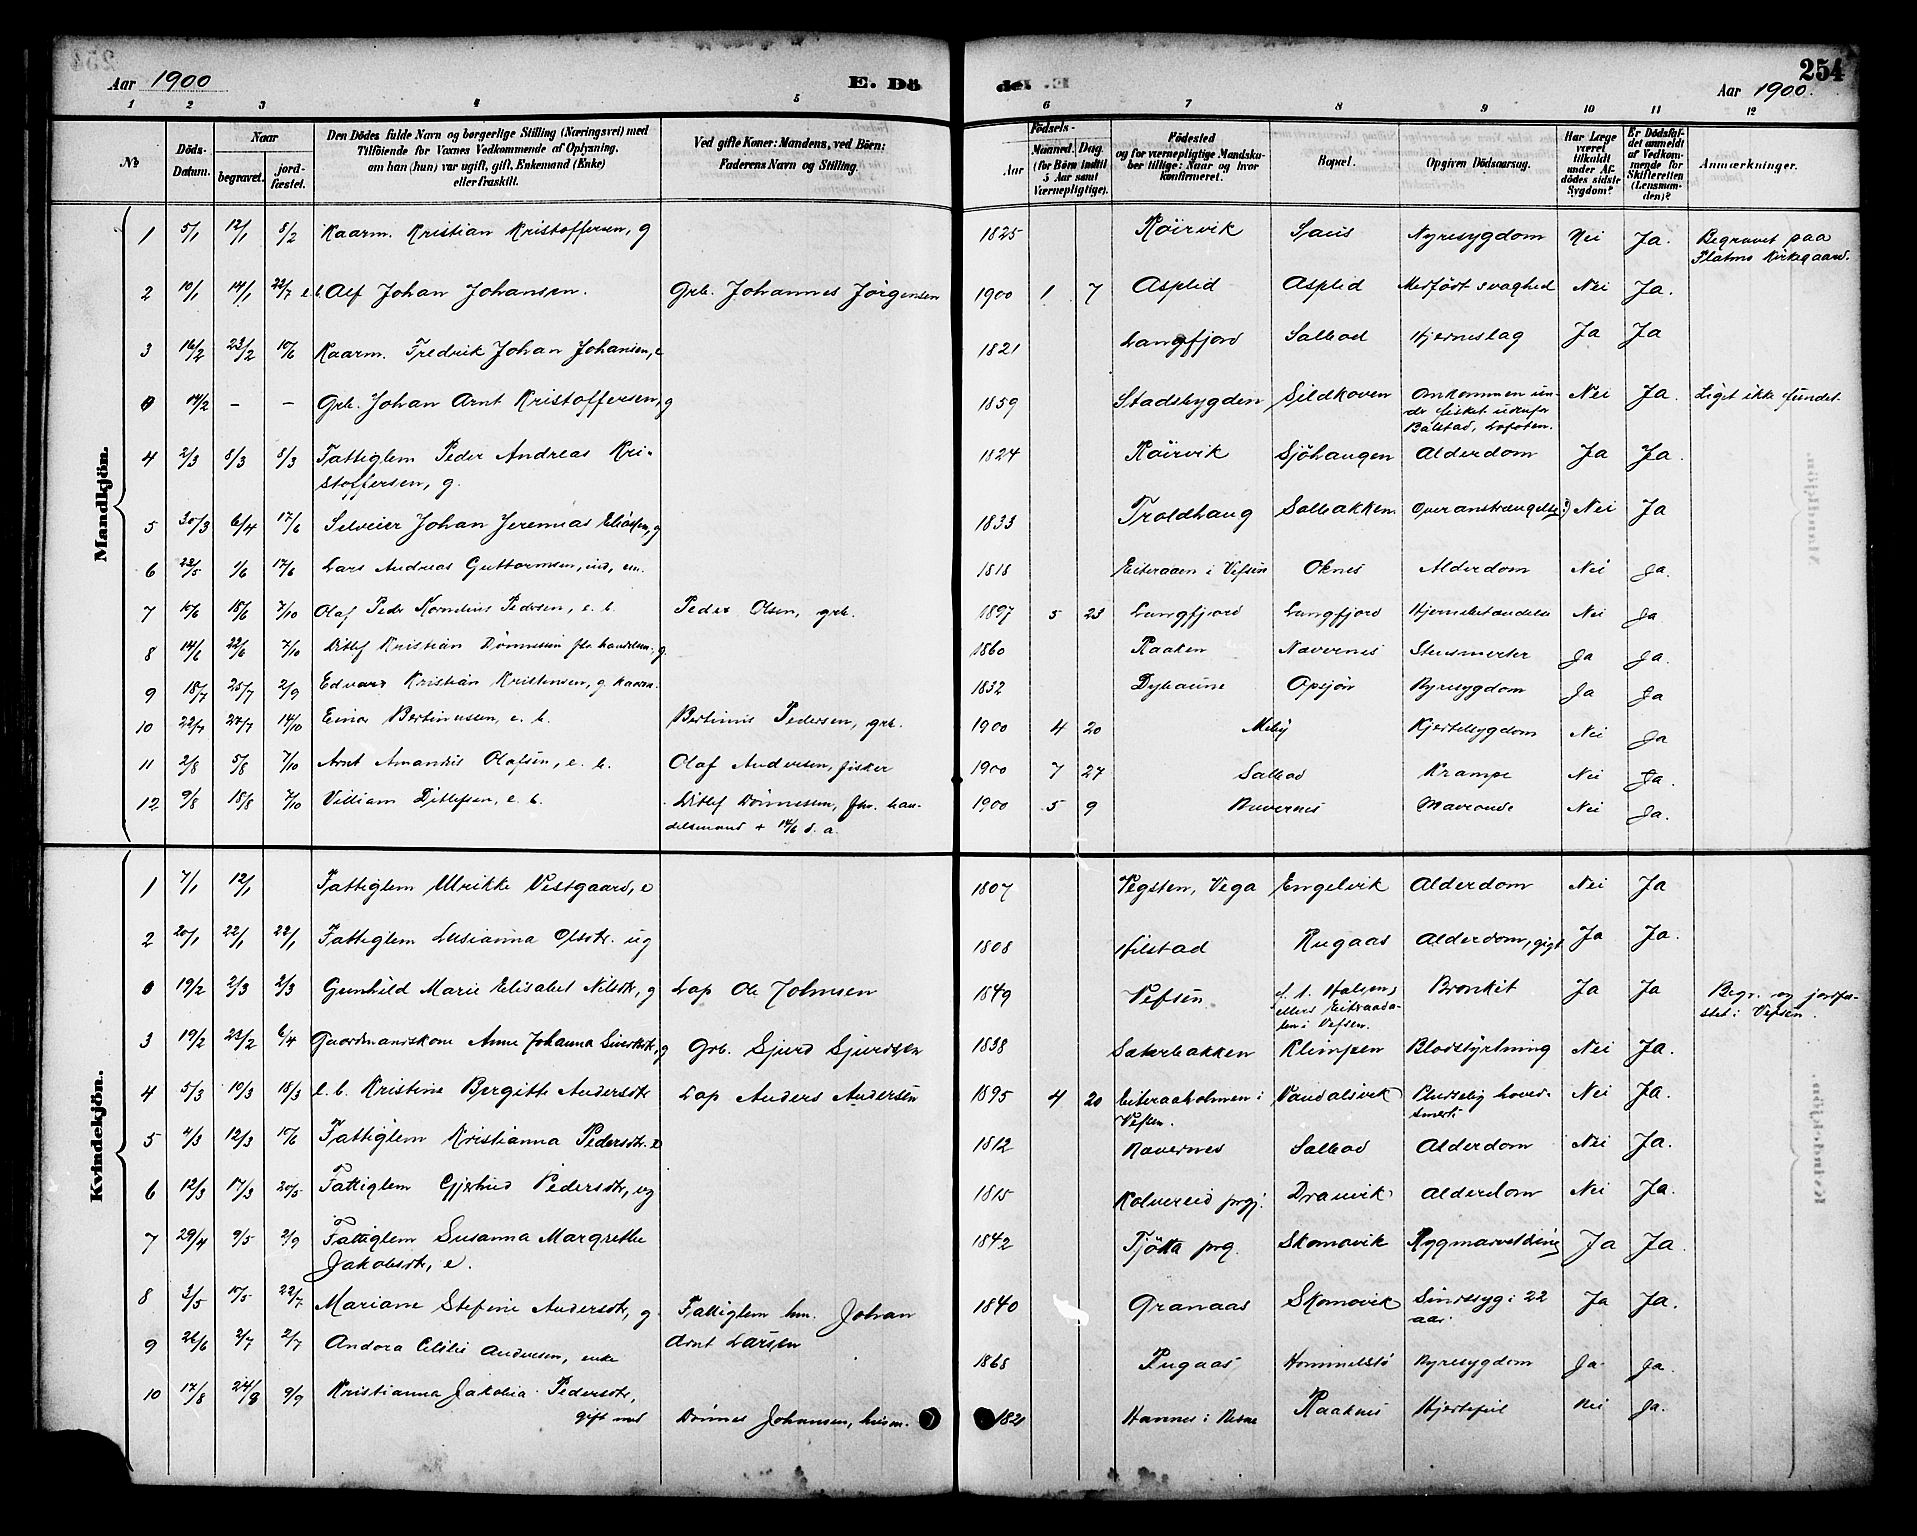 254
Aar 1900
E. Dö
de.
Aar 1900.
1 2 3 4 5 6 7 8 9 10 11 12
№
Döds-Datum.
Naar
begravet.
jord-fæstet.
Den Dödes fulde Navn og borgerlige Stilling (Næringsvei) med
Tilföiende for Voxnes Vedkommende af Oplysning,
om han (hun) var ugift, gift, Enkemand (Enke)
eller fraskilt.
Ved gifte Koner: Mandens, ved Börn:
Faderens Navn og Stilling.
Födsels-
Aar
Maaned. Dag.
(for Börn indtil
5 Aar samt
Værnepligtige).
Födested
og for værnepligtige Mandska-
ber tillige: Naar og hvor
konfirmeret.
Bopæl.
Opgiven Dödsaarsag.
Har Læge
været
tilkaldt
under Af-
dödes sidste
Sygdom?
Er Dödsfal-
det anmeldt
af Vedkom-
mende for
Skifteretten
(Lensman-
den)?
Anmærkninger.
Mandkjön.
1 5/1 12/1 8/2 Kaarm. Kristian Kristoffersen, g 1825 Röirvik Saus Nyresygdom Nei Ja. Begravet paa
Kirkegaard.
2 10/1 14/1 22/7 e.b. Alf Johan Johansen. Grb. Johannes Jørgensen 1900 1 7 Asplid Asplid Medfödt svaghed Nei Ja.
3 16/2 23/2 10/6 Kaarm. Fredrik Johan Johansen, e 1821 Langfjord Salbod Hjerneslag Ja Ja
0 14/2 - - Grb. Johan Arnt Kristoffersen, g 1859 Stadsbygden Sildhoven Omkommen un-
der fisket udenfor
Balstad, Lofoten. Nei Ja. Liget ikke fundet.
4 2/3 8/3 8/3 Fattiglem Peder Andreas Kri-
stoffersen, g. 1824 Röirvik Sjöhaugen Alderdom Ja Ja.
5 30/3 6/4 17/6 Selveier Johan Jeremias Eliassen, g 1833 Troldhaug Salbakken Overanstrængelse Nei Ja
6 23/5 1/6 17/6 Lars Andreas Guttormsen, ind, em. 1818 Eiteraaen i Vefsen Oknes Alderdom Nei Ja.
7 10/6 18/6 7/10 Olaf Peder Kornelius Pedersen, e. b. Peder Olsen, grb. 1897 5 23 Langfjord Langfjord Hjernebetændelse Nei Ja
8 14/6 22/6 7/10 Ditlef Kristian Dönnessen fhv. handelsm. g. 1860 Raaken Nævernes Stensmerter Ja Ja.
9 18/7 25/7 2/9 Edvard Kristian Kristensen, g kaarm. 1832 Dyhaune Opsjön Nyresygdom Ja Ja
10 22/7 27/7 14/10 Einar Bertinussen, e. b. Bertinus Pedersen, grb. 1900 4 20 Meby Kjertelsygdom Nei Ja
11 2/8 5/8 7/10 Arnt Amandus Olafsen, e. b. Olaf Andersen, fisker 1900 7 27 Salbod Krampe Nei Ja.
12 9/8 18/8 7/10 Villiam Ditlefsen, e. b. Ditlef Dönnessen, fhv. han-
delsmand + 14/6 d. a. 1900 5 9 Nævernes Maveonde Nei Ja.
Kvindekjön.
1 7/1 12/1 Fattiglem Ulrikke Vestgaard, e 1807 Vegsten, Vega Engelvik Alderdom Nei Ja
2 20/1 22/1 22/1 Fattiglem Lusianna Olsdtr. ug 1808 Hilstad Rugaas Alderdom, gigt Ja Ja.
0 19/2 2/3 2/3 Gunhild Marie Elisabet Nilsdtr, g Lap Ole Johnsen 1849 Vefsen f. t. Halsen,
ellers Eiteraada-
len i Vefsen. Bronkit Ja Ja Begr. og jordfæ-
stet i Vefsen.
3 19/2 23/2 6/4 Gaardmandskone Anne Johanna Sivertsdtr, g Grb. Sjurd Sjurdsen 1838 Sæterbakken Klimpen Blodstyrtning Nei Ja.
4 5/3 10/3 18/3 e. b. Kristine Bergitte Andersdtr Lap Anders Andersen 1895 4 20 Eiteraaholmen i
Vefsen. Vandalsvik Pludselig hoved-
smerte Nei Ja.
5 4/3 12/3 10/6 Fattiglem Kristianna Pedersdtr. e 1812 Nævernes Salbod Alderdom Nei Ja.
6 12/3 17/3 20/5 Fattiglem Gjertrud Pedersdtr, ug 1815 Kolvereid prgj. Dravik Alderdom Nei Ja.
7 29/4 9/5 2/9 Fattiglem Susanna Margrethe
Jakobsdtr, e. 1842 Tjötta prg. Skomovik Rygmarvslidning Ja Ja.
8 3/5 10/5 22/7 Mariane Stefine Andersdtr, g. Fattiglem hm. Johan
Arnt Larsen 1840 Granaas Skomovik Sindssyg i 22
aar Ja Ja.
9 26/6 2/7 2/7 Andora Cicilie Andersen, enke 1868 Rugaas Hommelstö Nyresygdom Ja Ja.
10 17/8 24/8 9/9 Kristianna Jakobia Pedersdtr,
gift med Dönnes Johansen, husm. 1821 Havnes i Raaknes Hjertefeil Nei Ja.